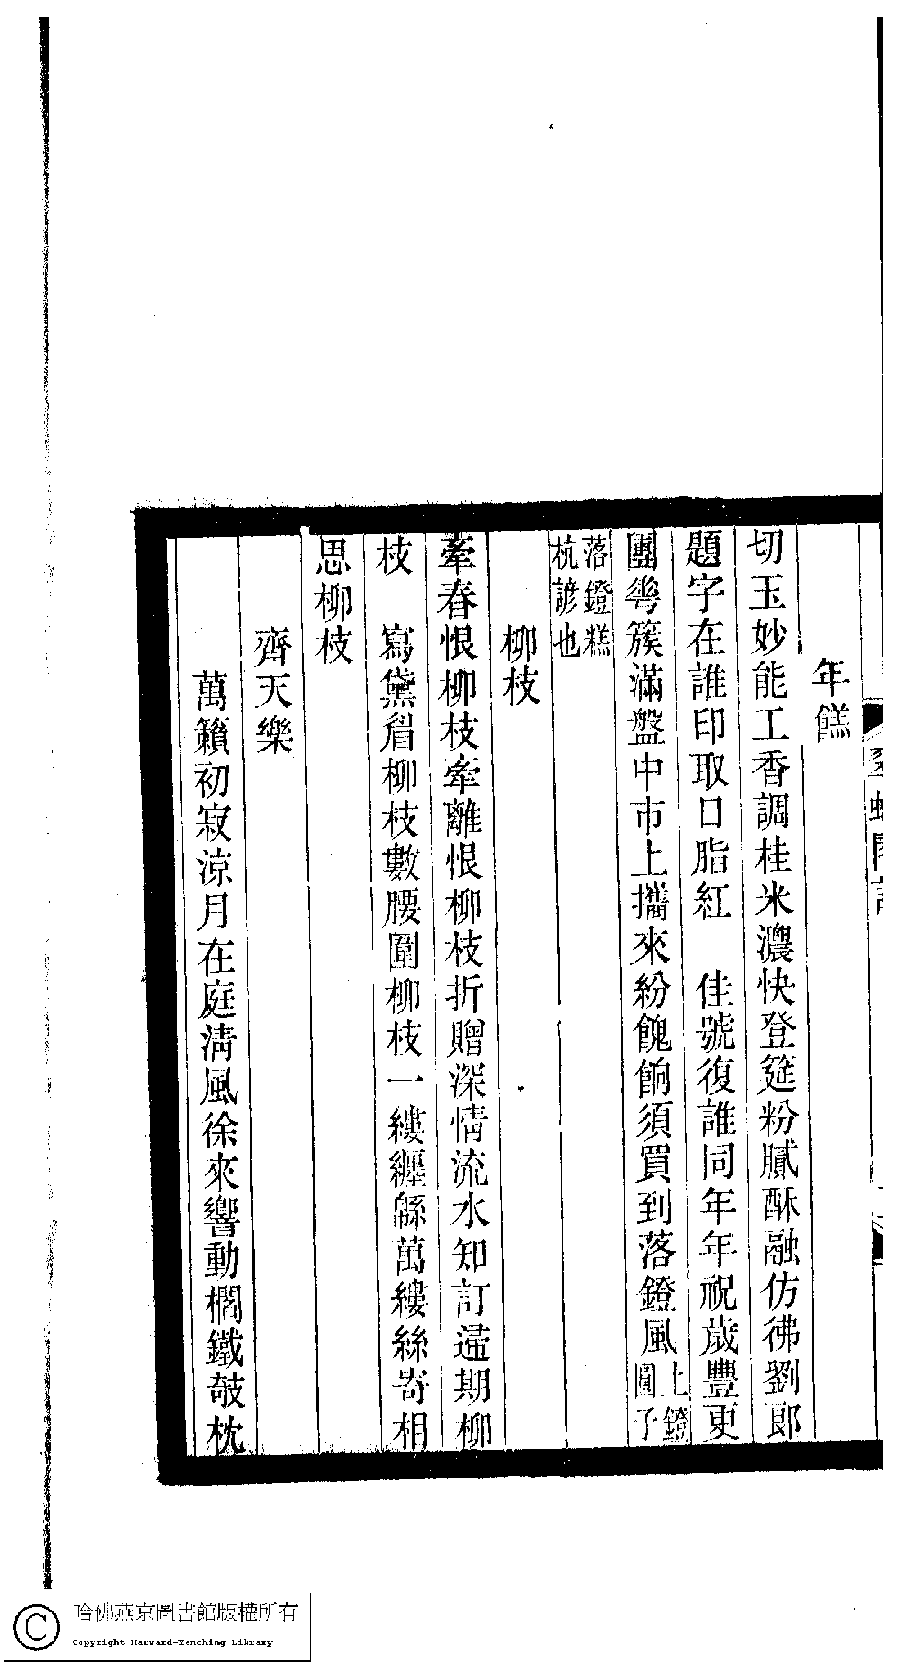 年餻
切玉妙能工香調桂米濃快登筵粉膩酥融仿彿劉郎
題字在誰印取口脂紅　佳號復誰同年年祝歲豐更
團雱簇滿盤中市上攜來紛餽餉須買到落鐙風上鐙圓子
落鐙糕
杭諺也
柳枝
牽春恨柳枝牽離恨柳枝折贈深情流水知訂歸期柳
枝　寫黛眉柳枝數腰圍柳枝一縷纏緜萬縷絲寄相
思柳枝
齊天樂
萬籟初寂涼月在庭淸風徐來響動櫩鐵攲枕
哈佛燕京圖書館版權所有
Copyright Harvard-Yenching Library